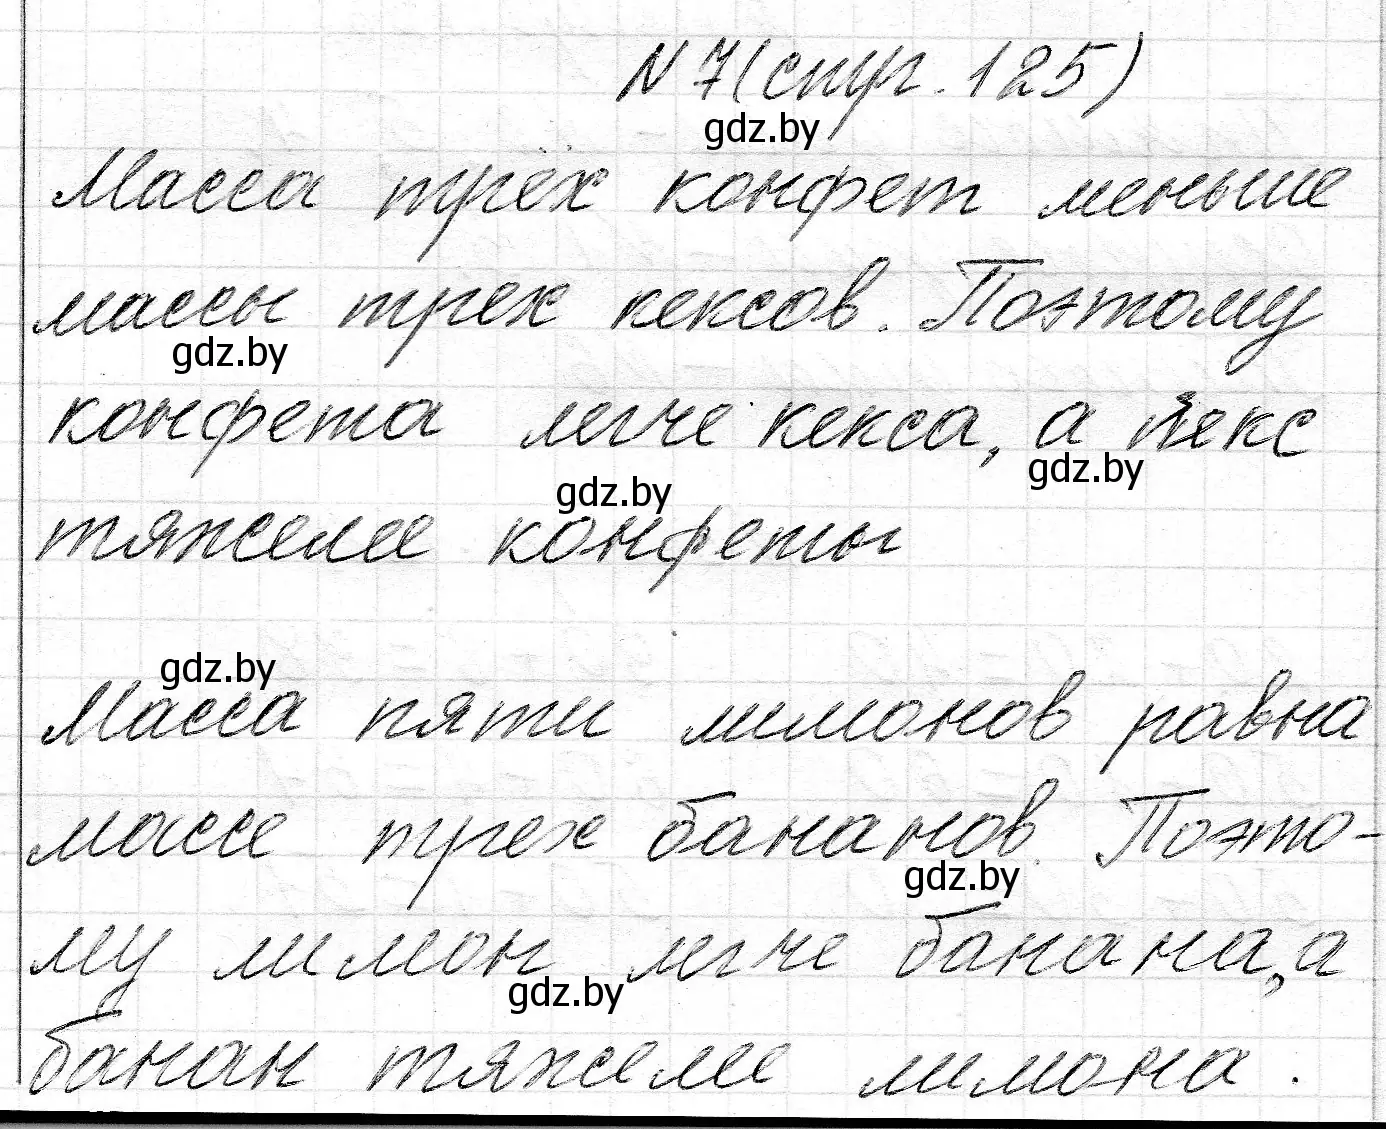 N 7 (стр. 125)
gdz.by
Масса трёх конфет меньше
массы трех кексов. Поэтому
gdz.by
конфета легче кекса, а кекс
gdz.by
gdz.by
тяжелее конфеты
gdz.by
Масса пяти лимонов равна
массе трех бананов. Поэто-
gdz.by
му лимон легче банана, а
gdz.by
банан тяжелее лимона.